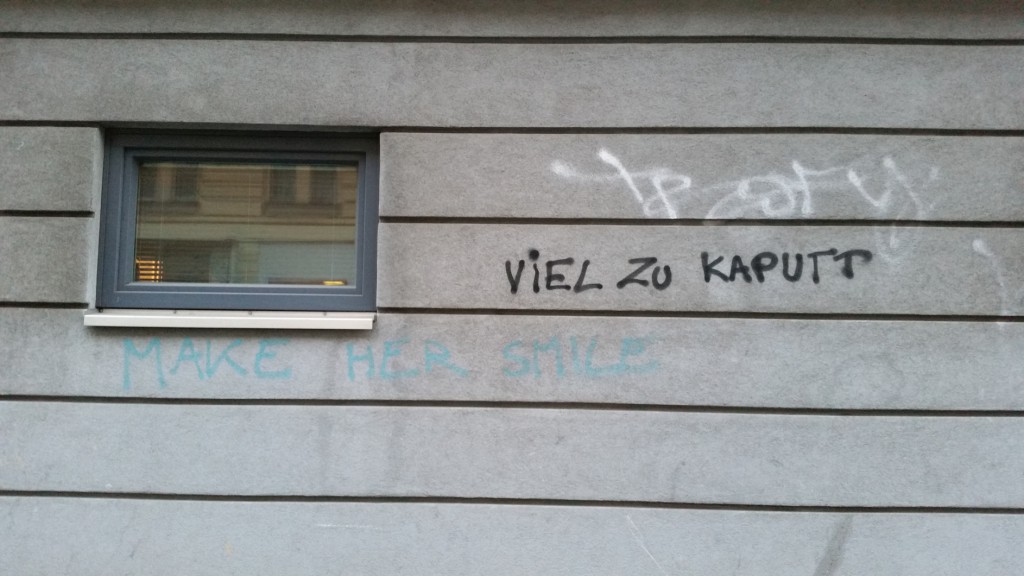 VIEL ZU KAPUTT
MAKE HER SMILE